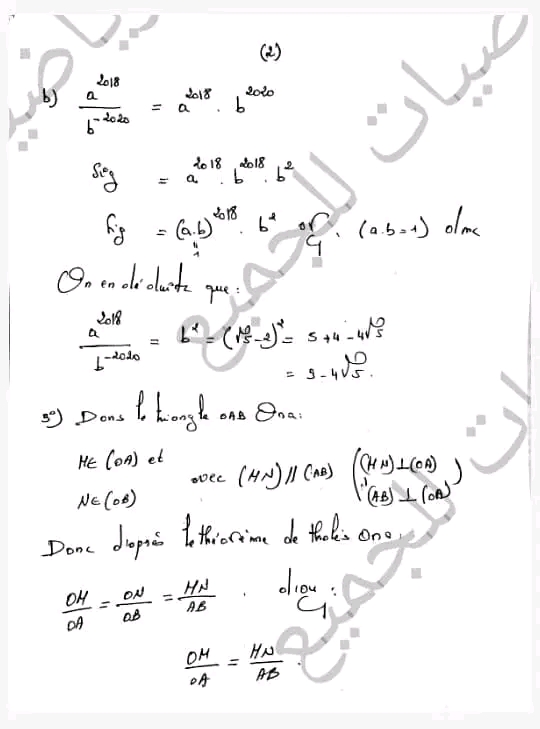 (2)
b) a^2018 / b^-2020 = a^2018 . b^2020
= a^2018 . b^2018 . b^2
= (a.b)^2018 . b^2 or (a.b=1) donc
On en déduit que :
a^2018 / b^-2020 = b^2 = (√5-2)^2 = 5+4-4√5
= 9-4√5.
3°) Dans le triangle OAB On a:
M∈(OA) et
N∈(OB) avec (MN)//(AB) ((MN)⊥(OA) (AB)⊥(OA))
Donc d'après le théorème de thalès On a:
OM/OA = ON/OB = MN/AB . d'où :
OM/OA = MN/AB .
للجميع
للجميع